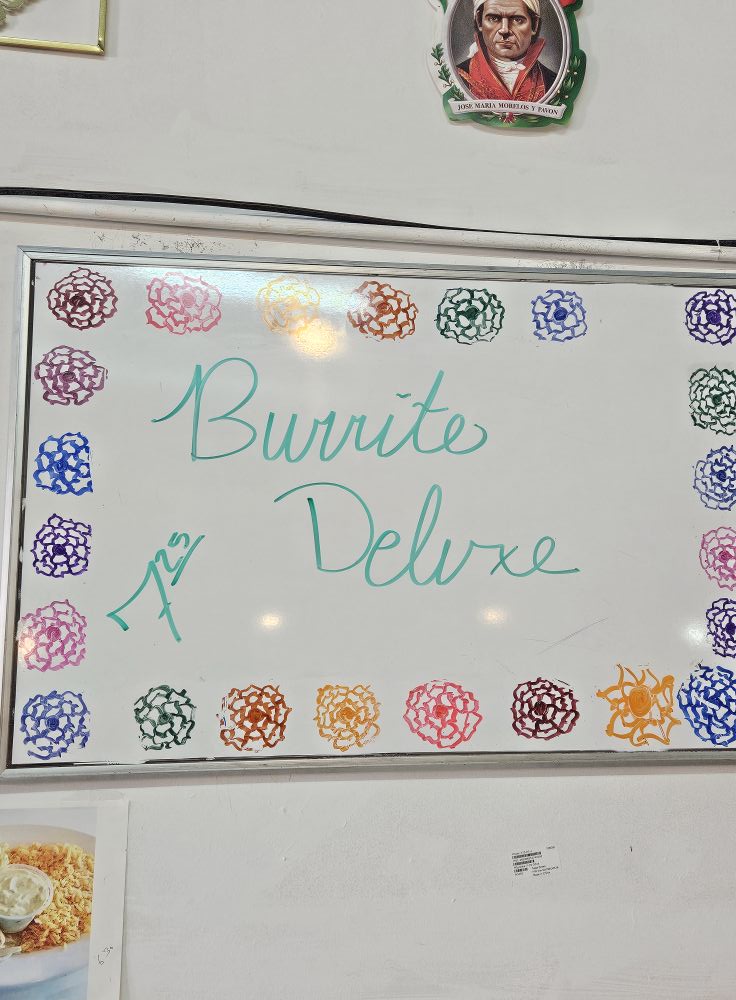 JOSE MARIA MORELOS Y PAVON
Burrite
Deluxe
7.25